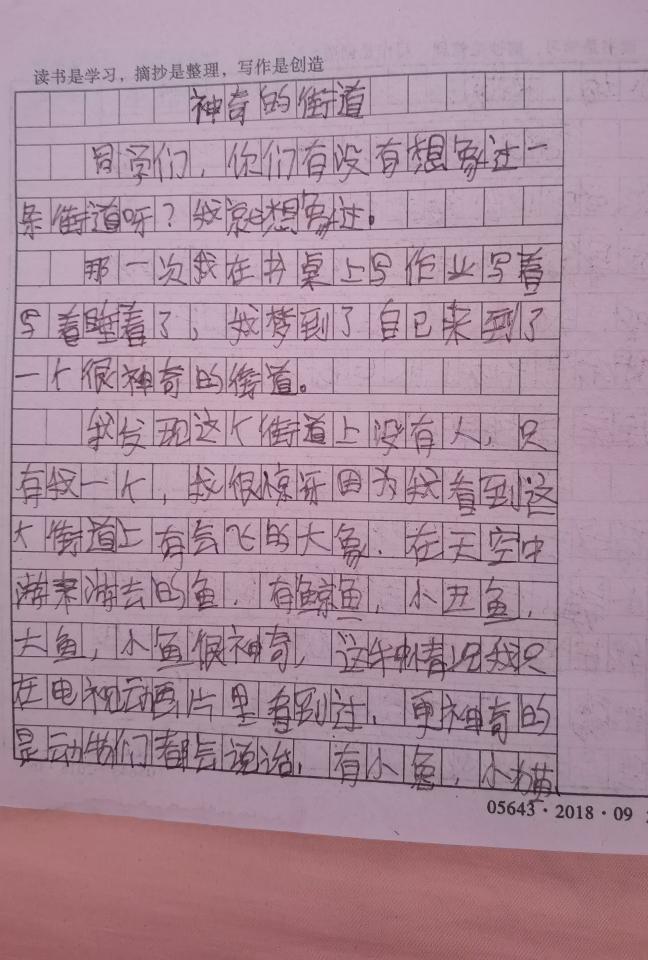 读书是学习，摘抄是整理，写作是创造
神奇的街道
同学们，你们有没有想象过一
条街道呀？我就想象过。
那一次我在书桌上写作业写着
写着睡着了，我梦到了自己来到了
一个很神奇的街道。
我发现这个街道上没有人，只
有我一个，我很惊讶因为我看到这
个街道上有会飞的大象．在天空中
游来游去的鱼．有鲸鱼，小丑鱼，
大鱼，小鱼很神奇，这种情况我只
在电视动画片里看到过．更神奇的
是动物们都会说话．有小兔，小猫
05643·2018·09